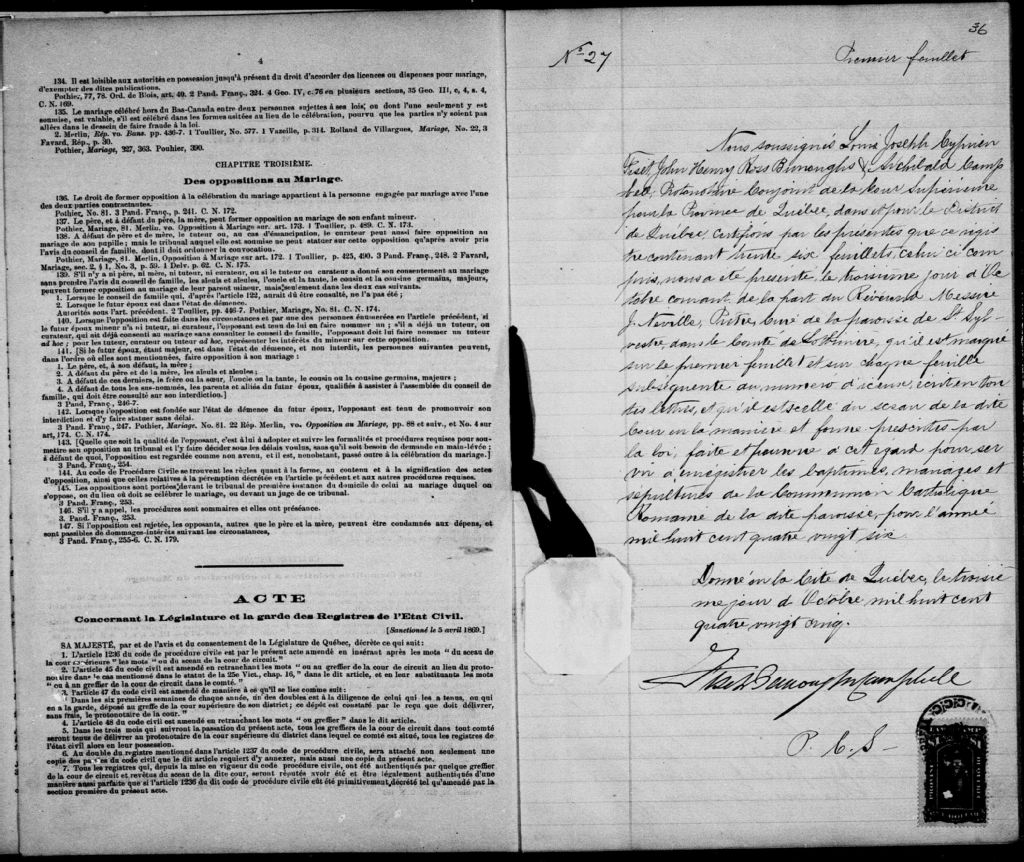 4
134. Il est loisible aux autorités en possession jusqu'à présent du droit d'acorder des licences ou dispenses pour mariage,
d'exempter des dites publications.
Pothier, 77, 78. Ord. de Blois, art. 40. 2 Pand. Franç., 324. 4 Geo. IV, c. 76 en plusieurs sections, 35 Geo. III, c. 4, s. 4,
C. N. 169.
135. Le mariage célébré hors du Bas-Canada entre deux personnes sujettes à ses lois, ou dont l'une seulement y est
soumise, est valable, s'il est célébré dans les formes usitées au lieu de la célébration, pourvu que les parties n'y soient pas
allées dans le dessein de faire fraude à la loi.
2. Merlin, Rép. vo. Bans. pp. 436-7. 1 Toullier, No. 577. 1 Vazeille, p. 314. Rolland de Villargues, Mariage, No. 22, 3
Favard, Rép., p. 30.
Pothier, Mariage, 327, 363. Pouhier, 390.
CHAPITRE TROISIÈME.
Des oppositions au Mariage.
136. Le droit de former opposition à la célébration du mariage appartient à la personne engagée par mariage avec l'une
des deux parties contractantes.
Pothier, No. 81. 3 Pand. Franç., p. 241. C. N. 172.
137. Le père, et à défaut du père, la mère, peut former opposition au mariage de son enfant mineur.
Pothier, Mariage, 81. Merlin vo. Opposition à Mariage sur. art. 173. 1 Toullier, p. 489. C. N. 173.
138. A défaut de père et de mère, le tuteur ou, au cas d'émancipation, le curateur peut aussi faire opposition au
mariage de son pupille; mais le tribunal auquel elle est soumise ne peut statuer sur cette opposition qu'après avoir pris
l'avis du conseil de famille, dont il doit ordonner la convocation.
Pothier, Mariage, 81. Merlin, Opposition à Mariage sur art. 172. 1 Toullier, p. 425, 490. 3 Pand. Franç., 248. 2 Favard,
Mariage, sec. 2, § 1, No. 3, p. 59. 1 Delv. p. 62. C. N. 175.
139. S'il n'y a ni père, ni mère, ni tuteur, ni curateur, ou si le tuteur ou curateur a donné son consentement au mariage
sans prendre l'avis du conseil de famille, les aïeuls et aïeules, l'oncle et la tante, le cousin et la cousine germains, majeurs,
peuvent former opposition au mariage de leur parent mineur, mais seulement dans les deux cas suivants.
1. Lorsque le conseil de famille qui, d'après l'article 122, aurait dû être consulté, ne l'a pas été;
2. Lorsque le futur époux est dans l'état de démence.
Autorités sous l'art. précédent. 2 Toullier, pp. 446-7. Pothier, Mariage, No. 81. C. N. 174.
140. Lorsque l'opposition est faite dans les circonstances et par une des personnes énumérées en l'article précédent, si
le futur époux mineur n'a ni tuteur, ni curateur, l'opposant est tenu de lui en faire nommer un; s'il a déjà un tuteur, ou
curateur, qui ait déjà consenti au mariage sans consulter le conseil de famille, l'opposant doit lui faire nommer un tuteur
ad hoc; pour les tuteur, curateur ou tuteur ad hoc, représenter les intérêts du mineur sur cette opposition.
141. [Si le futur époux, étant majeur, est dans l'état de démence, et non interdit, les personnes suivantes peuvent,
dans l'ordre où elles sont mentionnées, faire opposition à son mariage:
1. Le père, et, à son défaut, la mère;
2. A défaut du père et de la mère, les aïeuls et aïeules;
3. A défaut de ces derniers, le frère ou la sœur, l'oncle ou la tante, le cousin ou la cousine germains, majeurs;
4. A défaut de tous les sus-nommés, les parents et alliés du futur époux, qualifiés à assister à l'assemblée du conseil de
famille, qui doit être consulté sur son interdiction.]
3 Pand. Franç., 246-7.
142. Lorsque l'opposition est fondée sur l'état de démence du futur époux, l'opposant est tenu de promouvoir son
interdiction et d'y faire statuer sans délai.
3 Pand. Franç., 247. Pothier, Mariage, No. 81. 22 Rép. Merlin, vo. Opposition au Mariage, pp. 88 et suiv., et No. 4 sur
art, 174. C. N. 174.
143. [Quelle que soit la qualité de l'opposant, c'est à lui à adopter et suivre les formalités et procédures requises pour soumettre
son opposition au tribunal et l'y faire décider sous les délais voulus, sans qu'il soit besoin de demande en main-levée;
à défaut de quoi, l'opposition est regardée comme non avenu, et il est, nonobstant, passé outre à la célébration du mariage.]
3 Pand. Franç., 254.
144. Au code de Procédure Civile se trouvent les règles quant à la forme, au contenu et à la signification des actes
d'opposition, ainsi que celles relatives à la péremption décrétée en l'article précédent et aux autres procédures requises.
145. Les oppositions sont portées devant le tribunal de première instance du domicile de celui au mariage duquel on
s'oppose, ou du lieu où doit se célébrer le mariage, ou devant un juge de ce tribunal.
3 Pand. Franç., 253.
146. S'il y a appel, les procédures sont sommaires et elles ont préséance.
3. Pand. Franç., 253.
147. Si l'opposition est rejetée, les opposants, autres que le père et la mère, peuvent être condamnés aux dépens, et
sont passibles de dommages-intérêts suivant les circonstances,
3 Pand. Franç., 255-6. C. N. 179.
ACTE
Concernant la Législature et la garde des Registres de l'Etat Civil.
[Sanctionné le 5 avril 1869.]
SA MAJESTÉ, par et de l'avis et du consentement de la Législature de Québec, décrète ce qui suit:
1. L'article 1236 du code de procédure civile est par le présent acte amendé en insérant après les mots " du sceau de
la cour supérieure " les mots " ou du sceau de la cour de circuit."
2. L'article 45 du code civil est amendé en retranchant les mots " ou au greffier de la cour de circuit au lieu du protonotaire
dans le cas mentionné dans le statut de la 25e Vict., chap. 16," dans le dit article, et en leur substituants les mots
" ou à un greffier de la cour de circuit dans le comté."
3. L'article 47 du code civil est amendé de manière à ce qu'il se lise comme suit:
" Dans les six premières semaines de chaque année, un des doubles est à la diligence de celui qui les a tenus, ou qui
en a la garde, déposé au greffe de la cour supérieure de son district; ce dépôt est constaté par le reçu que doit délivrer,
sans frais, le protonotaire de la cour."
4. L'article 48 du code civil est amendé en retranchant les mots " ou greffier " dans le dit article.
5. Dans les trois mois qui suivront la passation du présent acte, tous les greffiers de la cour de circuit dans tout comté
seront tenus de délivrer au protonotaire de la cour supérieure du district dans lequel ce comté est situé, tous les registres de
l'état civil alors en leur possession.
6. Au double du registre mentionné dans l'article 1237 du code de procédure civile, sera attaché non seulement une
copie des parties du code civil que le dit article requiert d'y annexer, mais aussi une copie du présent acte.
7. Tous les registres qui, depuis la mise en vigueur du code procédure civile, ont été authentiqués par quelque greffier
de la cour de circuit et revêtus du sceau de la dite cour, seront réputés avoir été et être légalement authentiqués d'une
manière aussi parfaite que si l'article 1236 du dit code de procédure civile eût été primitivement décrété tel qu'amendé par la
section première du présent acte.
No 27
36
Premier feuillet
Nous soussignés Louis Joseph Cyprien
Fiset, John Henry Ross Burroughs & Archibald Camp
bell, Protonotaire Conjoint de la Cour Supérieure
pour la Province de Québec, dans et pour le District
de Québec, Certifions par les présentes que ce regis
tre contenant trente six feuillets, celui ci com
pris, nous a été présenté, le troisième jour d'Oc
tobre courant, de la part du Révérend Messire
J. Neville, Prêtre, Curé de la paroisse de St. Syl-
vestre, dans le Comté de Lotbinière, qu'il est marqué
sur le premier feuillet et sur chaque feuille
subséquente du numéro d'iceux, écrit en tou
tes lettres, et qu'il est scellé du sceau de la dite
Cour en la manière et forme prescrites par
la loi, faite et pourvue à cet égard pour ser
vir à enregistrer les baptêmes, mariages et
sépultures de la Communion Catholique
Romaine de la dite paroisse, pour l'année
mil huit cent quatre vingt six.
Donné en la Cité de Québec, le troisiè
me jour d'Octobre mil huit cent
quatre vingt cinq.
Fiset Burroughs Campbell
P. C. S